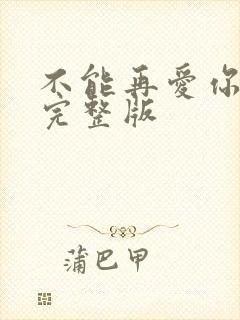 不能再爱你
完整版
蒲巴甲